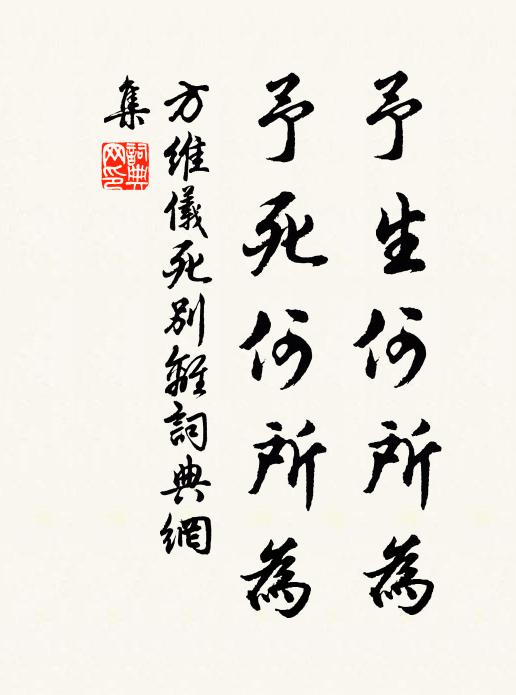 予生何所為
予死何所為
方維儀死別離詞典網
集
詞典网印